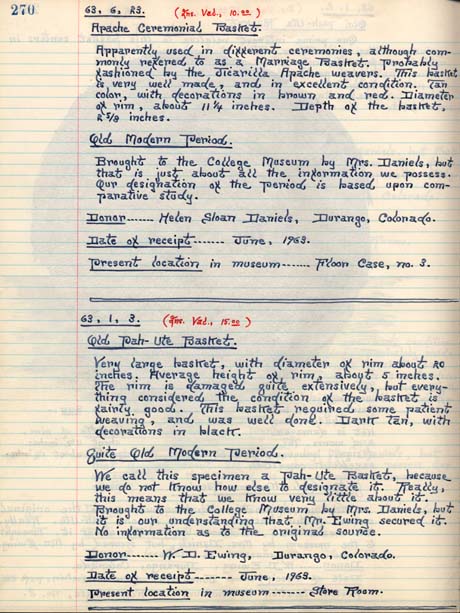 270
63, 6, 23. (Ins. Val., 10.00)
Apache Ceremonial Basket.
Apparently used in different ceremonies, although com-
monly refered to as a Marriage Basket. Probably
fashioned by the Jicarilla Apache weavers. This basket
is very well made, and in excellent condition. Tan
color, with decorations in brown and red. Diameter
of rim, about 11 1/4 inches. Depth of the basket,
2 5/8 inches.
Old Modern Period.
Brought to the College Museum by Mrs. Daniels, but
that is just about all the information we possess.
Our designation of the period is based upon com-
parative study.
Donor----- Helen Sloan Daniels, Durango, Colorado.
Date of receipt------ June, 1963.
Present location in museum------- Floor Case, no. 3.
63, 1, 3. (Ins. Val., 15.00)
Old Pah-Ute Basket.
Very large basket, with diameter of rim about 20
inches. Average height of rim, about 5 inches.
The rim is damaged quite extensively, but every-
thing considered the condition of the basket is
fairly good. This basket required some patient
weaving, and was well done. Dark tan, with
decorations in black.
Quite Old Modern Period.
We call this specimen a Pah-Ute Basket, because
we do not know how else to designate it. Really,
this means that we know very little about it.
Brought to the College Museum by Mrs. Daniels, but
it is our understanding that Mr. Ewing secured it.
No information as to the original source.
Donor------- W. D. Ewing, Durango, Colorado.
Date of receipt-------- June, 1963.
Present location in museum------- Store Room.